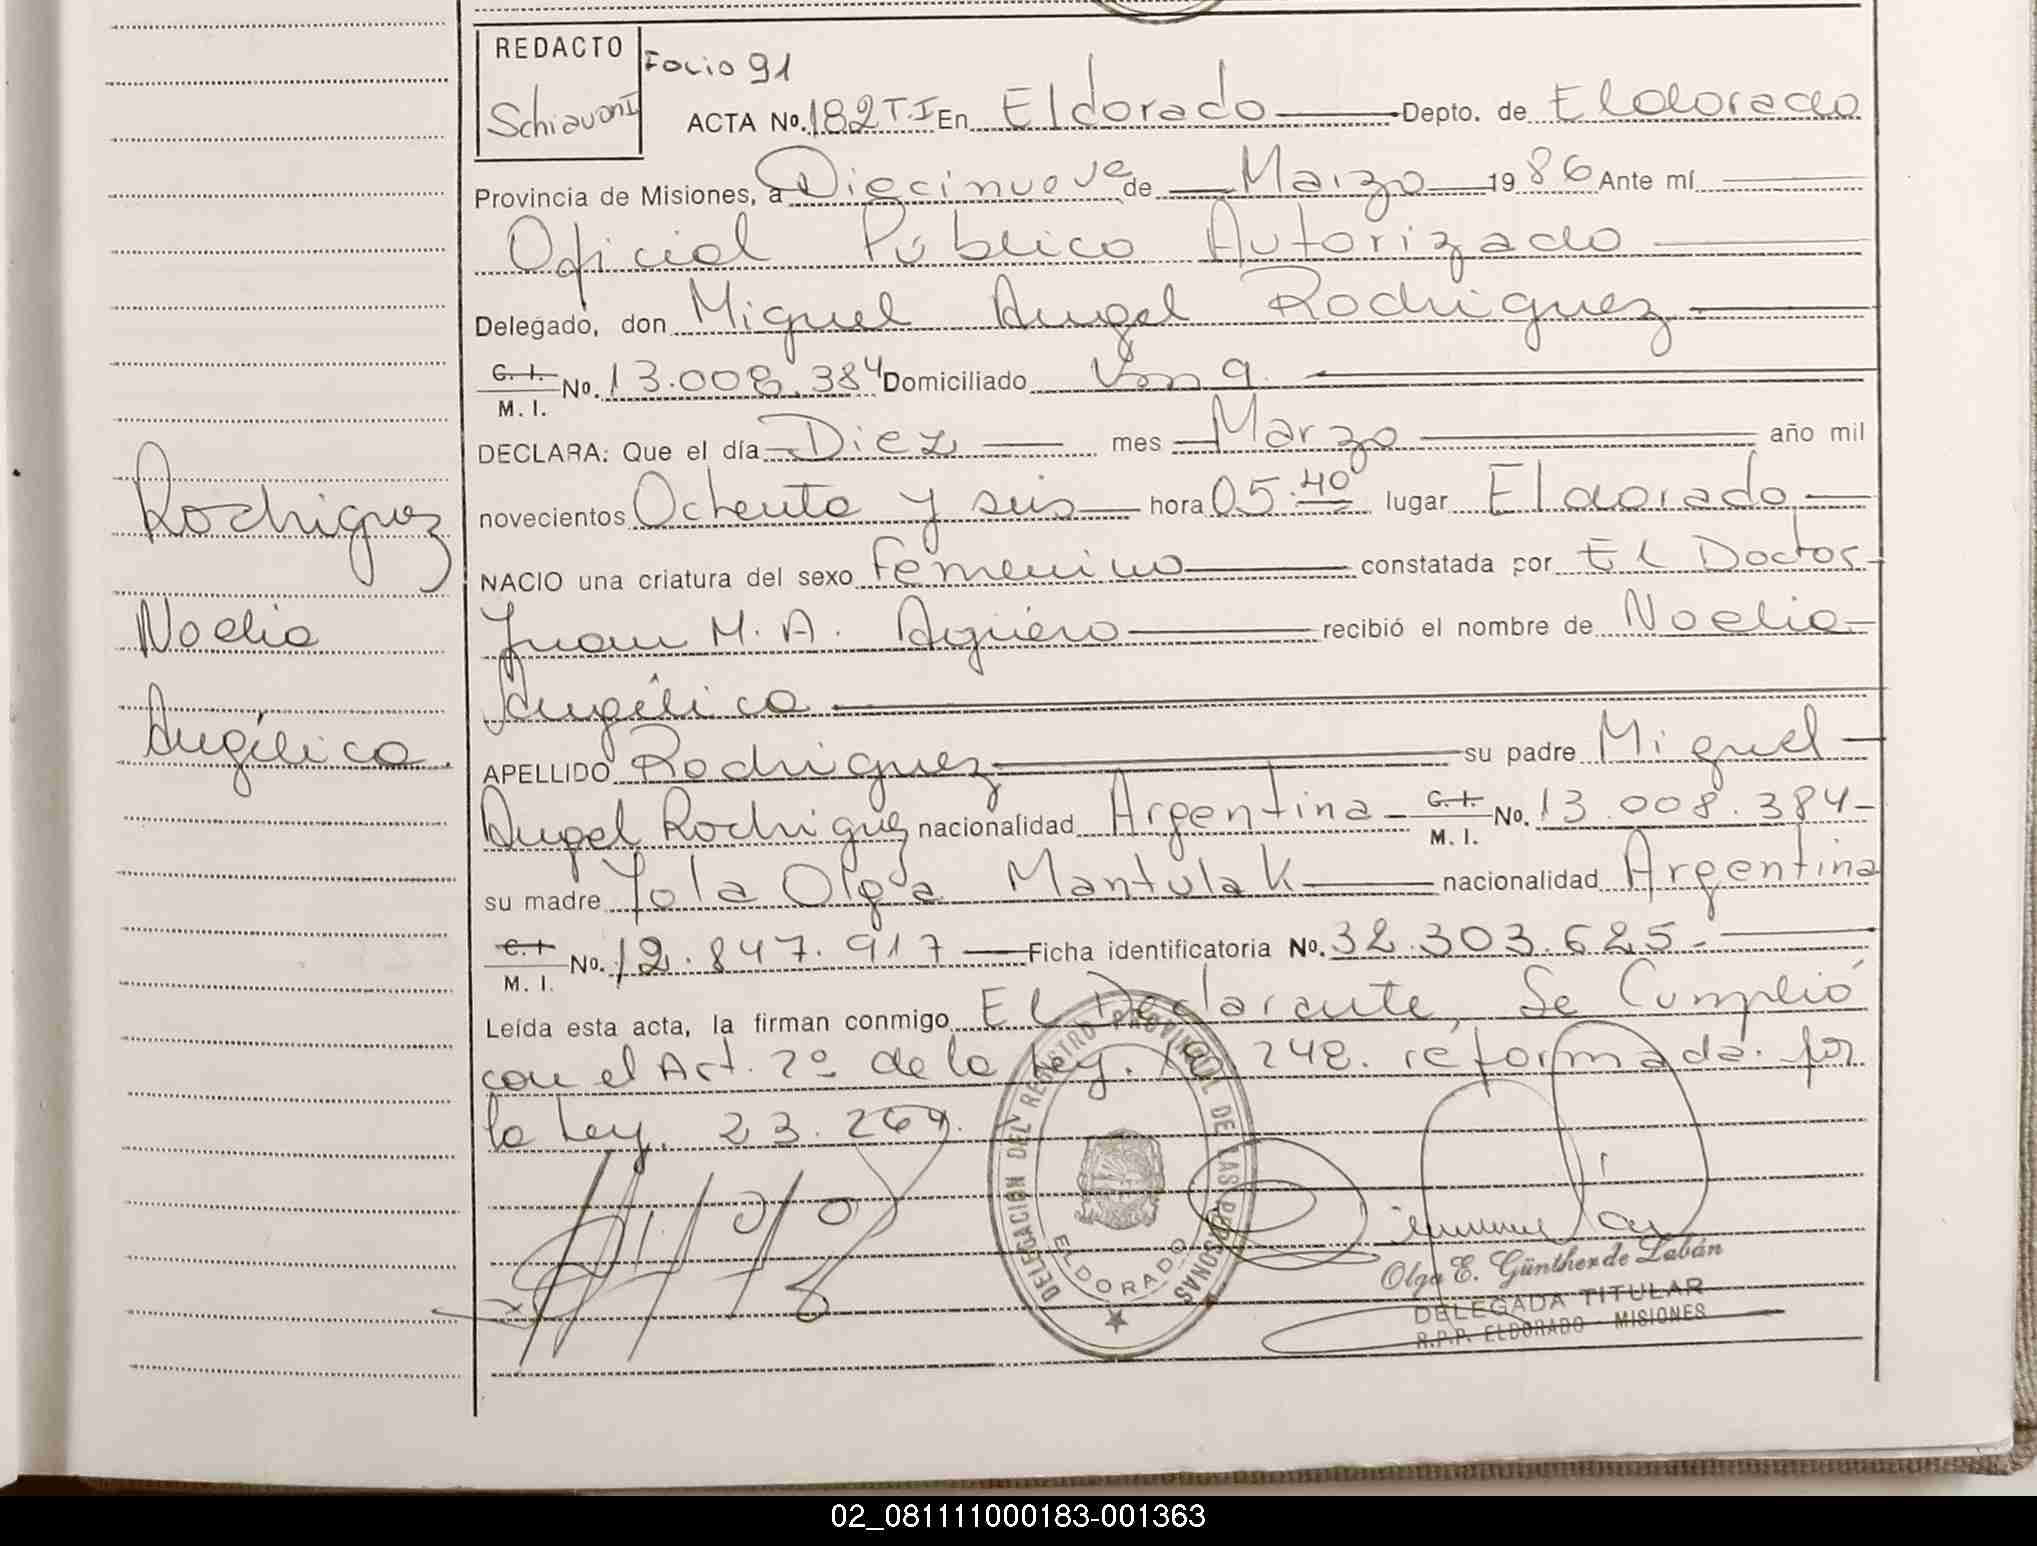 REDACTO
Schiavoni
Folio 91
ACTA No. 182 T.I En Eldorado Depto. de Eldorado
Provincia de Misiones, a Diecinueve de Marzo 1986 Ante mí
Oficial Público Autorizado
Delegado, don Miguel Angel Rodriguez
C. I. M. I. No. 13.008.384 Domiciliado
DECLARA: Que el día Diez mes Marzo año mil
novecientos Ochenta y seis hora 05.40 lugar Eldorado
NACIO una criatura del sexo Femenino constatada por El Doctor
Juan M. A. Agüero recibió el nombre de Noelia
Angélica
APELLIDO Rodriguez su padre Miguel
Angel Rodriguez nacionalidad Argentina C. I. M. I. No. 13.008.384
su madre Yola Olga Mantulak nacionalidad Argentina
C. I M. I. No. 12.847.917 Ficha identificatoria No. 32.303.625.
Leída esta acta, la firman conmigo El Declarante, Se Cumplió
con el Art. 2º de la Ley. 248. reformada por
la Ley. 23.264.
Rodriguez
Noelia
Angélica.
DELEGACION DEL REGISTRO PROVINCIAL DE LAS PERSONAS
ELDORADO
Olga E. Günther de Labán
DELEGADA TITULAR
R.P.P. ELDORADO - MISIONES
02_081111000183-001363